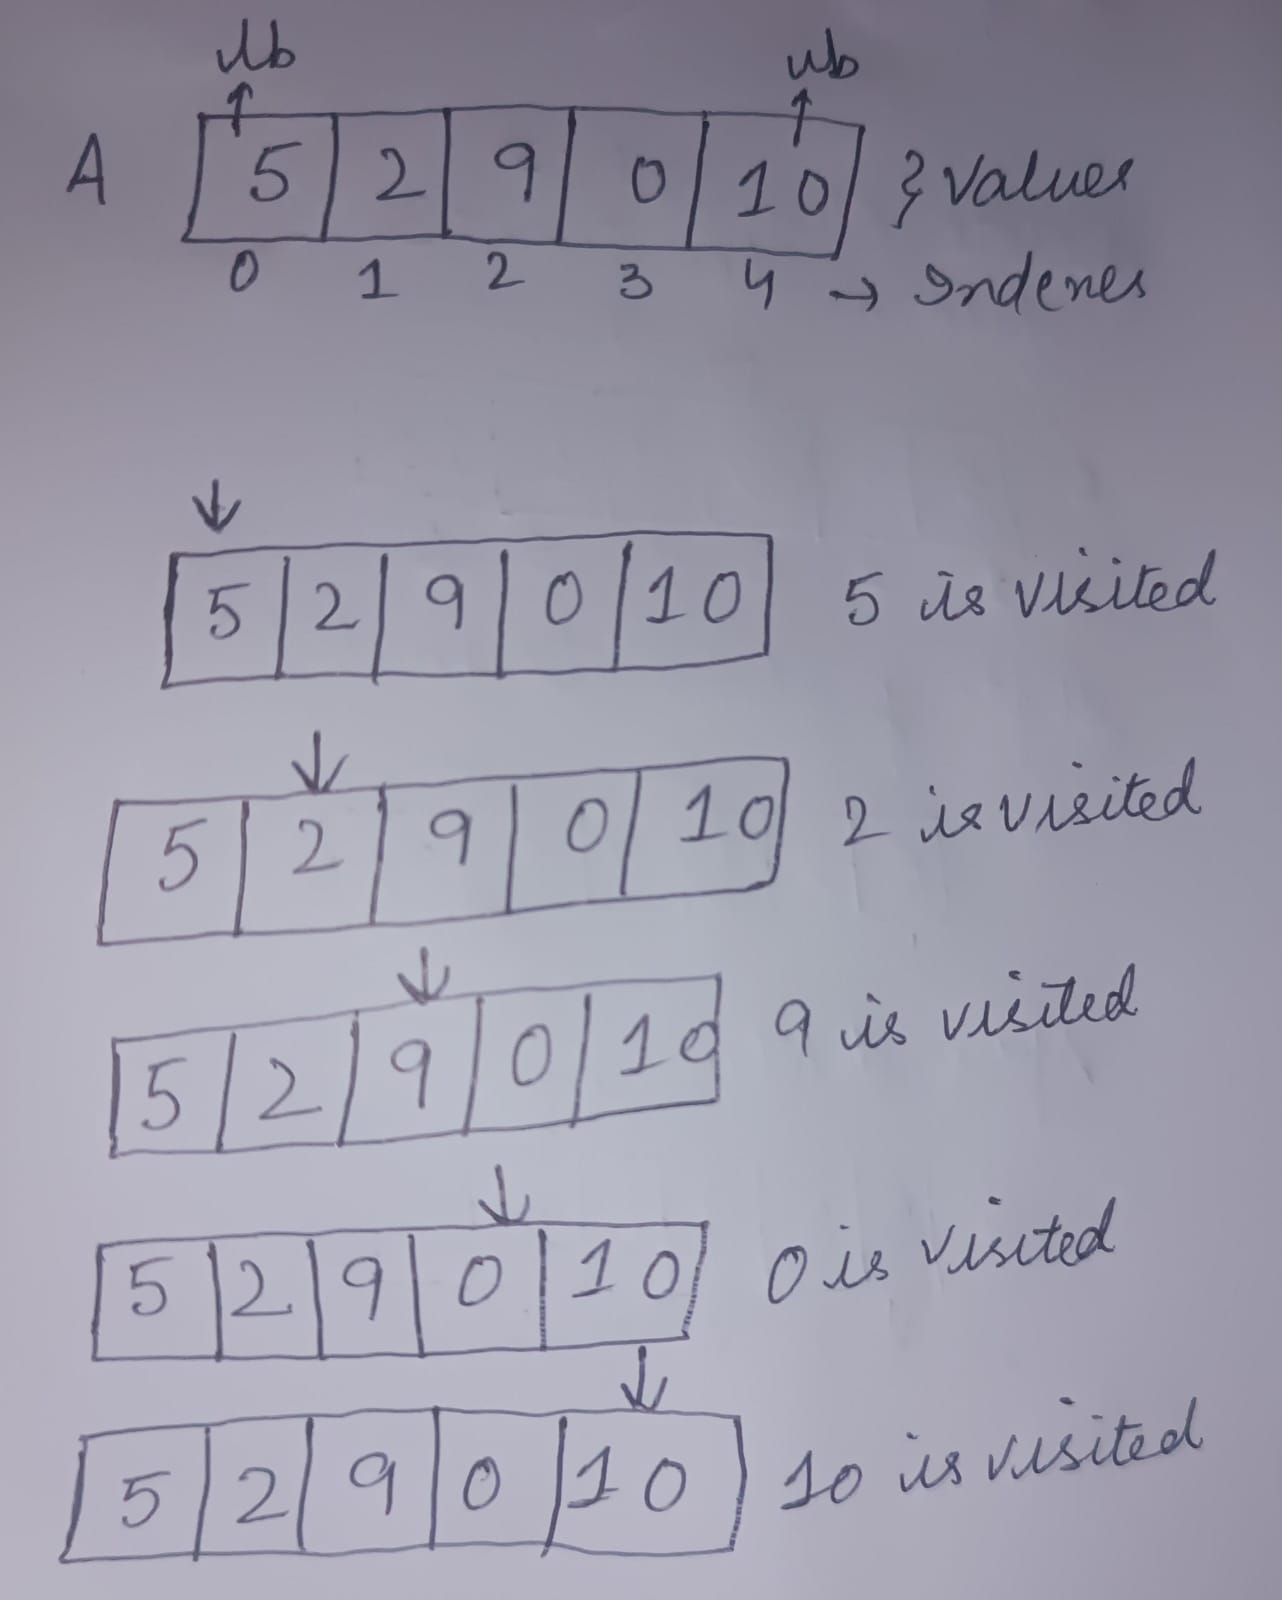 lb ub
A 5 2 9 0 10 } values
0 1 2 3 4 → Indexes
5 2 9 0 10 5 is visited
5 2 9 0 10 2 is visited
5 2 9 0 10 9 is visited
5 2 9 0 10 0 is visited
5 2 9 0 10 10 is visited